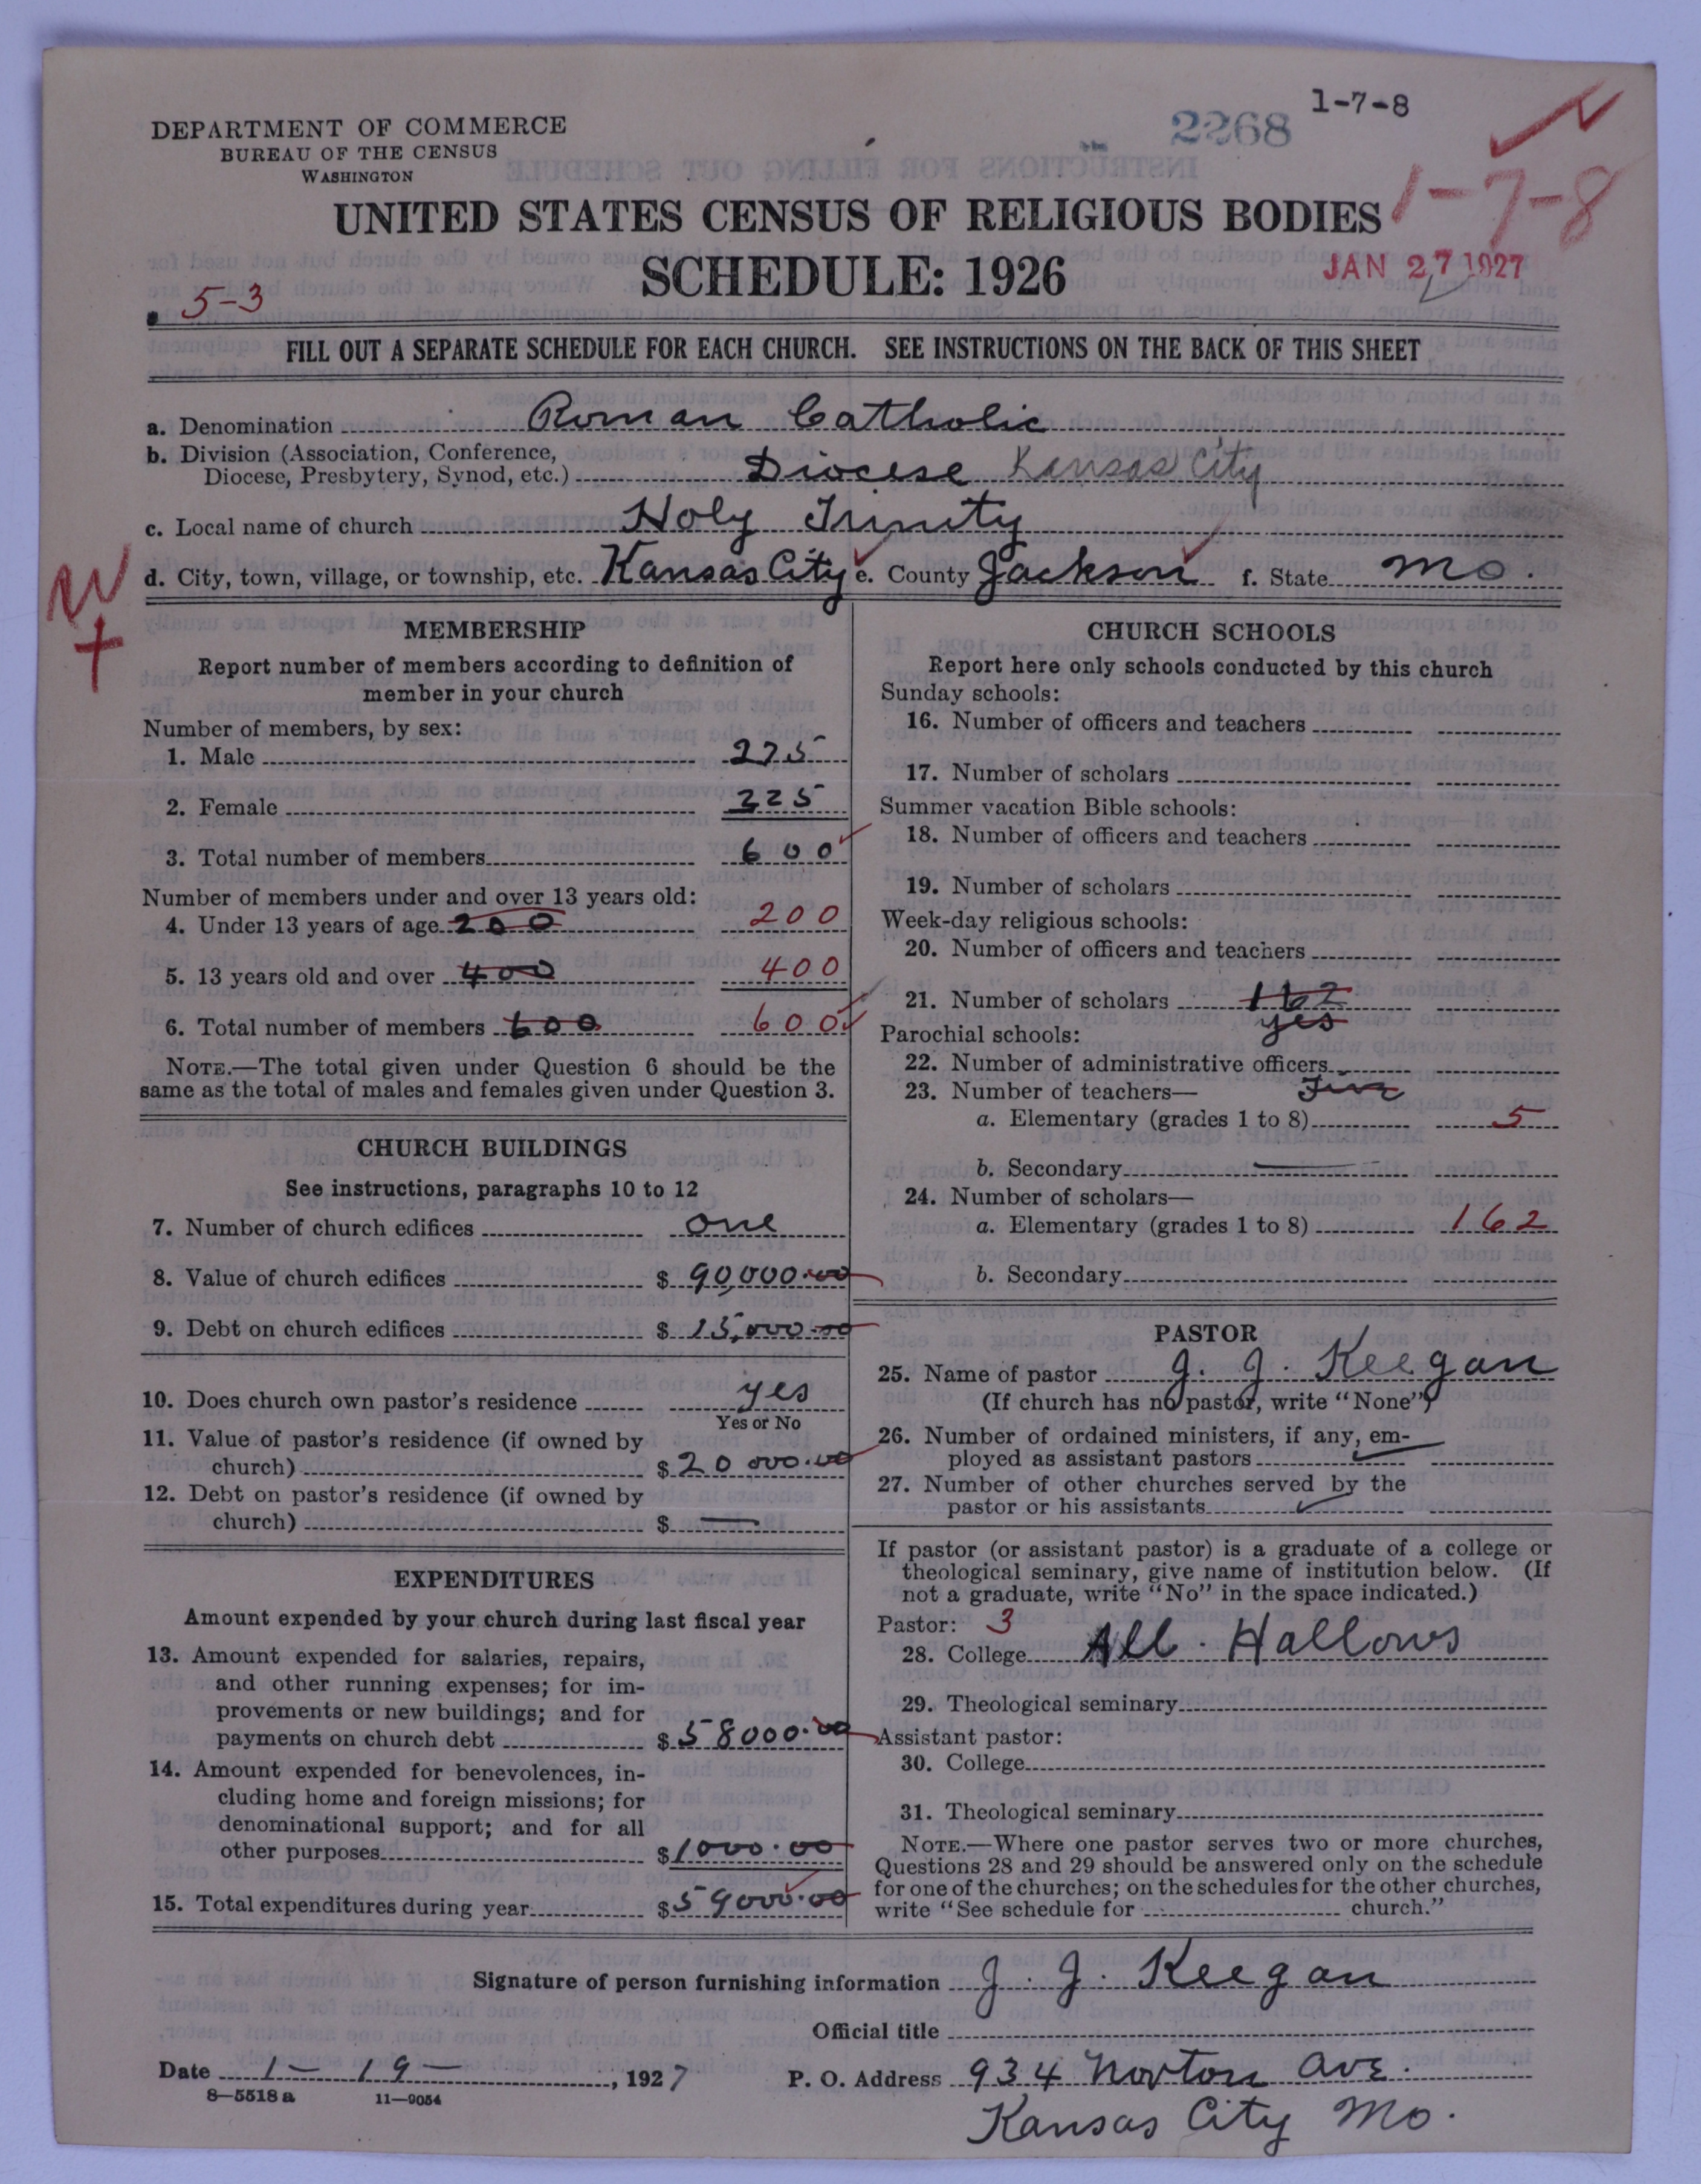 1-7-8
2268
DEPARTMENT OF COMMERCE
BUREAU OF THE CENSUS
WASHINGTON
1-7-8
UNITED STATES CENSUS OF RELIGIOUS BODIES
SCHEDULE: 1926
JAN 27 1927
5-3
FILL OUT A SEPARATE SCHEDULE FOR EACH CHURCH. SEE INSTRUCTIONS ON THE BACK OF THIS SHEET
a. Denomination Roman Catholic
b. Division (Association, Conference,
Diocese, Presbytery, Synod, etc.) Diocese Kansas City
c. Local name of church Holy Trinity
d. City, town, village, or township, etc. Kansas City e. County Jackson f. State Mo.
MEMBERSHIP
Report number of members according to definition of
member in your church
Number of members, by sex:
1. Male 275
2. Female 325
3. Total number of members 600
Number of members under and over 13 years old:
4. Under 13 years of age 200 200
5. 13 years old and over 400 400
6. Total number of members 600 600
NOTE.—The total given under Question 6 should be the
same as the total of males and females given under Question 3.
CHURCH BUILDINGS
See instructions, paragraphs 10 to 12
7. Number of church edifices one
8. Value of church edifices $ 90,000.00
9. Debt on church edifices $ 15,000.00
10. Does church own pastor's residence yes
Yes or No
11. Value of pastor's residence (if owned by
church) $ 20 000.00
12. Debt on pastor's residence (if owned by
church) $ —
EXPENDITURES
Amount expended by your church during last fiscal year
13. Amount expended for salaries, repairs,
and other running expenses; for im-
provements or new buildings; and for
payments on church debt $ 58000.00
14. Amount expended for benevolences, in-
cluding home and foreign missions; for
denominational support; and for all
other purposes $ 1000.00
15. Total expenditures during year $ 59000.00
CHURCH SCHOOLS
Report here only schools conducted by this church
Sunday schools:
16. Number of officers and teachers
17. Number of scholars
Summer vacation Bible schools:
18. Number of officers and teachers
19. Number of scholars
Week-day religious schools:
20. Number of officers and teachers
21. Number of scholars 162
yes
Parochial schools:
22. Number of administrative officers
23. Number of teachers— Five
a. Elementary (grades 1 to 8) 5
b. Secondary —
24. Number of scholars—
a. Elementary (grades 1 to 8) 162
b. Secondary
PASTOR
25. Name of pastor J. J. Keegan
(If church has no pastor, write "None")
26. Number of ordained ministers, if any, em-
ployed as assistant pastors
27. Number of other churches served by the
pastor or his assistants
If pastor (or assistant pastor) is a graduate of a college or
theological seminary, give name of institution below. (If
not a graduate, write "No" in the space indicated.)
Pastor: 3
28. College All Hallows
29. Theological seminary
Assistant pastor:
30. College
31. Theological seminary
NOTE.—Where one pastor serves two or more churches,
Questions 28 and 29 should be answered only on the schedule
for one of the churches; on the schedules for the other churches,
write "See schedule for church."
Signature of person furnishing information J. J. Keegan
Official title
Date 1 — 19 —, 1927
P. O. Address 934 Norton Ave.
Kansas City Mo.
8—5518 a 11—9054